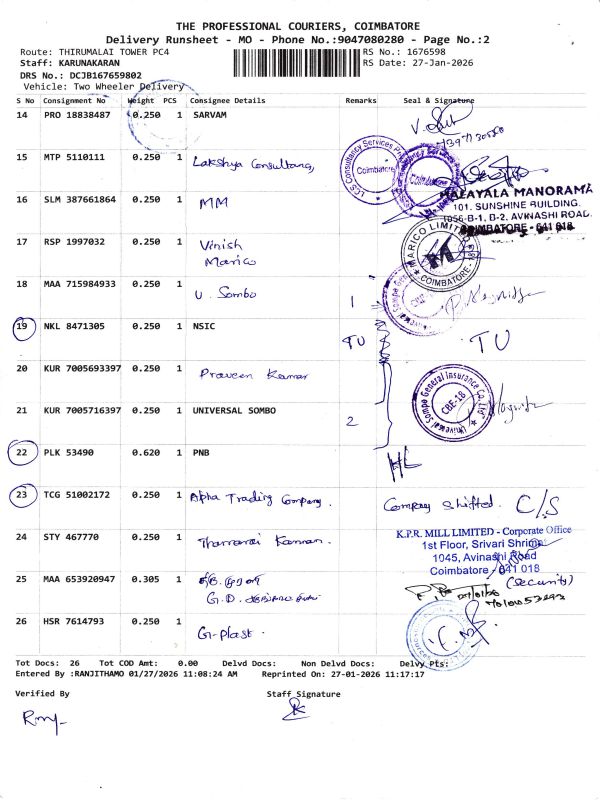 THE PROFESSIONAL COURIERS, COIMBATORE
Delivery Runsheet - MO - Phone No.:9047080280 - Page No.:2
Route: THIRUMALAI TOWER PC4
RS No.: 1676598
Staff: KARUNAKARAN
RS Date: 27-Jan-2026
DRS No.: DCJB167659802
Vehicle: Two Wheeler Delivery
S No Consignment No Weight PCS Consignee Details Remarks Seal & Signature
14 PRO 18838487 0.250 1 SARVAM
15 MTP 5110111 0.250 1 Lakshya Consulting,
J.C.S. Consultancy Services
Coimbatore
16 SLM 387661864 0.250 1 MM
MALAYALA MANORAMA
101, SUNSHINE BUILDING,
1056-B-1, B-2, AVINASHI ROAD,
COIMBATORE - 641 018
17 RSP 1997032 0.250 1 Vinish
Marico
MARICO LIMITED
M
COIMBATORE - 18
18 MAA 715984933 0.250 1 U. Sombo 1
19 NKL 8471305 0.250 1 NSIC TU TU
20 KUR 7005693397 0.250 1 Praveen Kumar
21 KUR 7005716397 0.250 1 UNIVERSAL SOMBO 2
Universal Sompo General Insurance Co. Ltd
CBE-18
22 PLK 53490 0.620 1 PNB HL
23 TCG 51002172 0.250 1 Alpha Trading Company. Company Shifted. C/S
24 STY 467770 0.250 1 Thamarai Kannan.
K.P.R. MILL LIMITED - Corporate Office
1st Floor, Srivari Shrimat
1045, Avinashi Road
Coimbatore - 641 018
(Security)
25 MAA 653920947 0.305 1
G.D.
26 HSR 7614793 0.250 1 G-plast.
Tot Docs: 26 Tot COD Amt: 0.00 Delvd Docs: Non Delvd Docs: Delvy Pts:
Entered By :RANJITHAMO 01/27/2026 11:08:24 AM Reprinted On: 27-01-2026 11:17:17
Verified By Staff Signature